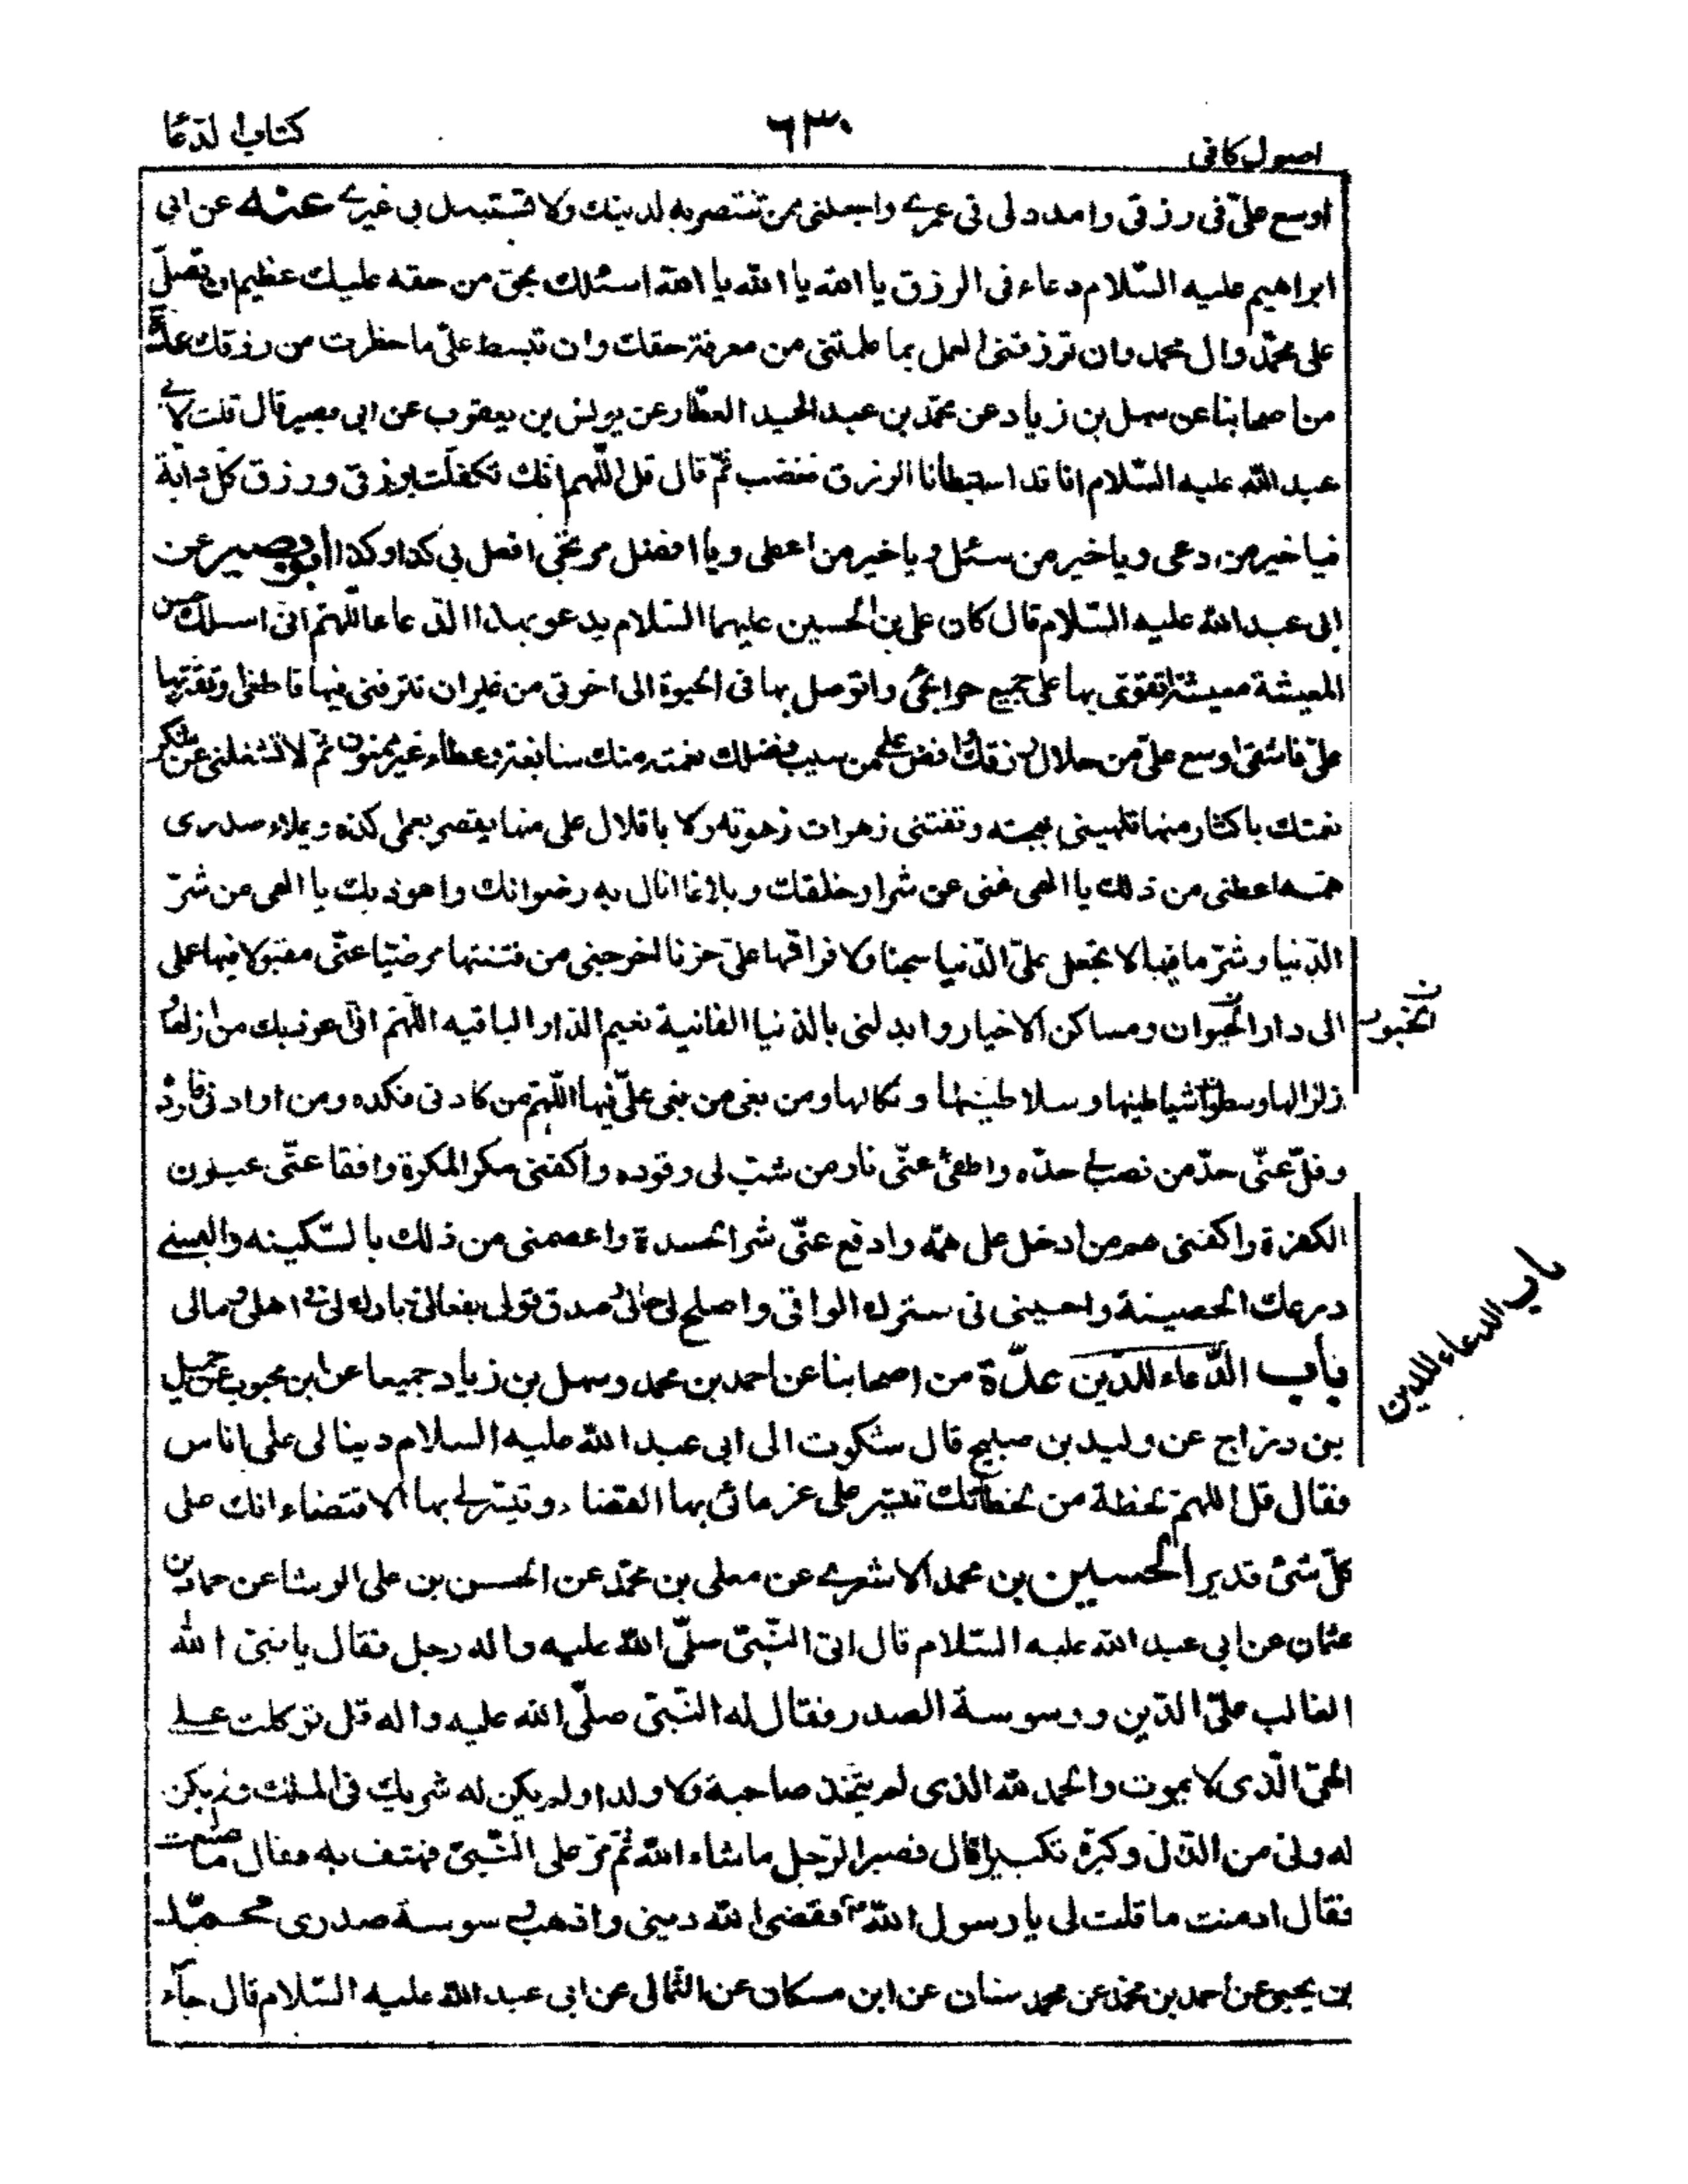 كتاب الدعا
٦٣٠
اصول كافى
اوسع علىّ فى رزقى وامدد لى فى عمرے واجعلنى من تنتصر به لدينك ولا تستبدل بى غيرے عنه عن ابى
ابراهيم عليه السّلام دعاء فى الرزق يا الله يا الله يا الله اسئلك بحق من حقه عليك عظيم ان تصلّى
على محمّد وال محمد وان ترزقنى العمل بما علمتنى من معرفة حقك وان تبسط علىّ ما حظرت من رزقك عدّة
من اصحابنا عن سهل بن زياد عن محمّد بن عبد الحميد العطّار عن يونس بن يعقوب عن ابى بصير قال قلت لابے
عبد الله عليه السّلام انا قد استبطأنا الرزق فغضب ثمّ قال قل اللّهم انك تكفلت برزقى ورزق كلّ دابّة
فيا خير من دعى ويا خير من سئل ويا خير من اعطى ويا افضل مرتجى افعل بى كذا وكذا ابو بصير عن
ابى عبد الله عليه السّلام قال كان على بن الحسين عليهما السّلام يدعو بهذا الدّعاء اللّهمّ انى اسئلك حسن
المعيشة معيشة اتقوى بها على جميع حوائجى واتوصل بها فى الحيوة الى اخرتى من غير ان تترفنى فيها فاطغى او تقتّر بها
علىّ فاشقى اوسع علىّ من حلال رزقك وافض علىّ من سيب فضلك نعمته منك سابغة وعطاء غير ممنون ثمّ لا تشغلنى عن شكر
نعمتك باكثار منها تلهينى بهجته وتفتنى زهرات زهوته ولا باقلال على منها يقصر بعملى كده ويملاء صدرى
همّه اعطنى من ذلك يا الهى غنى عن شرار خلقك وبلاغا انال به رضوانك واعوذ بك يا الهى من شرّ
الدّنيا وشرّ ما فيها لا تجعل علىّ الدّنيا سجنا ولا فراقها علىّ حزنا اخرجنى من فتنتها مرضيّا عنّى مقبولا فيها عملى
الى دار الحيوان ومساكن الاخيار وابدلنى بالدّنيا الفانية نعيم الدّار الباقيه اللّهمّ انّى اعوذ بك من ازلها و
زلزالها وسطوات شياطينها وسلاطينها ونكالها ومن بغى من بغى علىّ فيها اللّهمّ من كادنى فكده ومن ارادنى فارده
وفلّ عنّى حدّ من نصب لى حدّه واطفئ عنّى نار من شبّ لى وقوده واكفنى مكر المكرة وافقا عنّى عيون
الكفرة واكفنى هم من ادخل على همّه وادفع عنّى شر الحسدة واعصمنى من ذلك بالسّكينه والبسنے
درعك الحصينة واحينى فى سترك الواقى واصلح لى حالى وصدق قولى بفعالى وبارك لى فى اهلى ومالى
باب الدّعاء للدّين عدّة من اصحابنا عن احمد بن محمد وسهل بن زياد جميعا عن ابن محبوب عن جميل
بن درّاج عن وليد بن صبيح قال شكوت الى ابى عبد الله عليه السلام دينا لى على اناس
فقال قل اللهمّ لحظة من لحظاتك تيسّر على غرمائى بها القضاء وتيسّر لى بها الاقتضاء انك على
كلّ شئ قدير الحسين بن محمد الاشعرے عن معلى بن محمّد عن الحسن بن على الوشا عن حماد بن
عثمان عن ابى عبد الله عليه السّلام قال اتى النّبىّ صلّى الله عليه واله رجل فقال يا نبىّ الله
الغالب علىّ الدّين ووسوسة الصدر فقال له النّبىّ صلّى الله عليه واله قل توكلت علے
الحىّ الّذى لا يموت والحمد لله الذى لم يتّخذ صاحبة ولا ولدا ولم يكن له شريك فى الملك ولم يكن
له ولىّ من الذّلّ وكبّره تكبيرا قال فصبر الرّجل ما شاء الله ثمّ مرّ على النّبىّ فهتف به فقال ما صنعت
فقال ادمنت ما قلت لى يا رسول الله ص فقضى الله دينى واذهب وسوسة صدرى محمّد
بن يحيى عن احمد بن محمّد عن محمد سنان عن ابن مسكان عن الثّمالى عن ابى عبد الله عليه السّلام قال جآء
باب الدعاء للدين